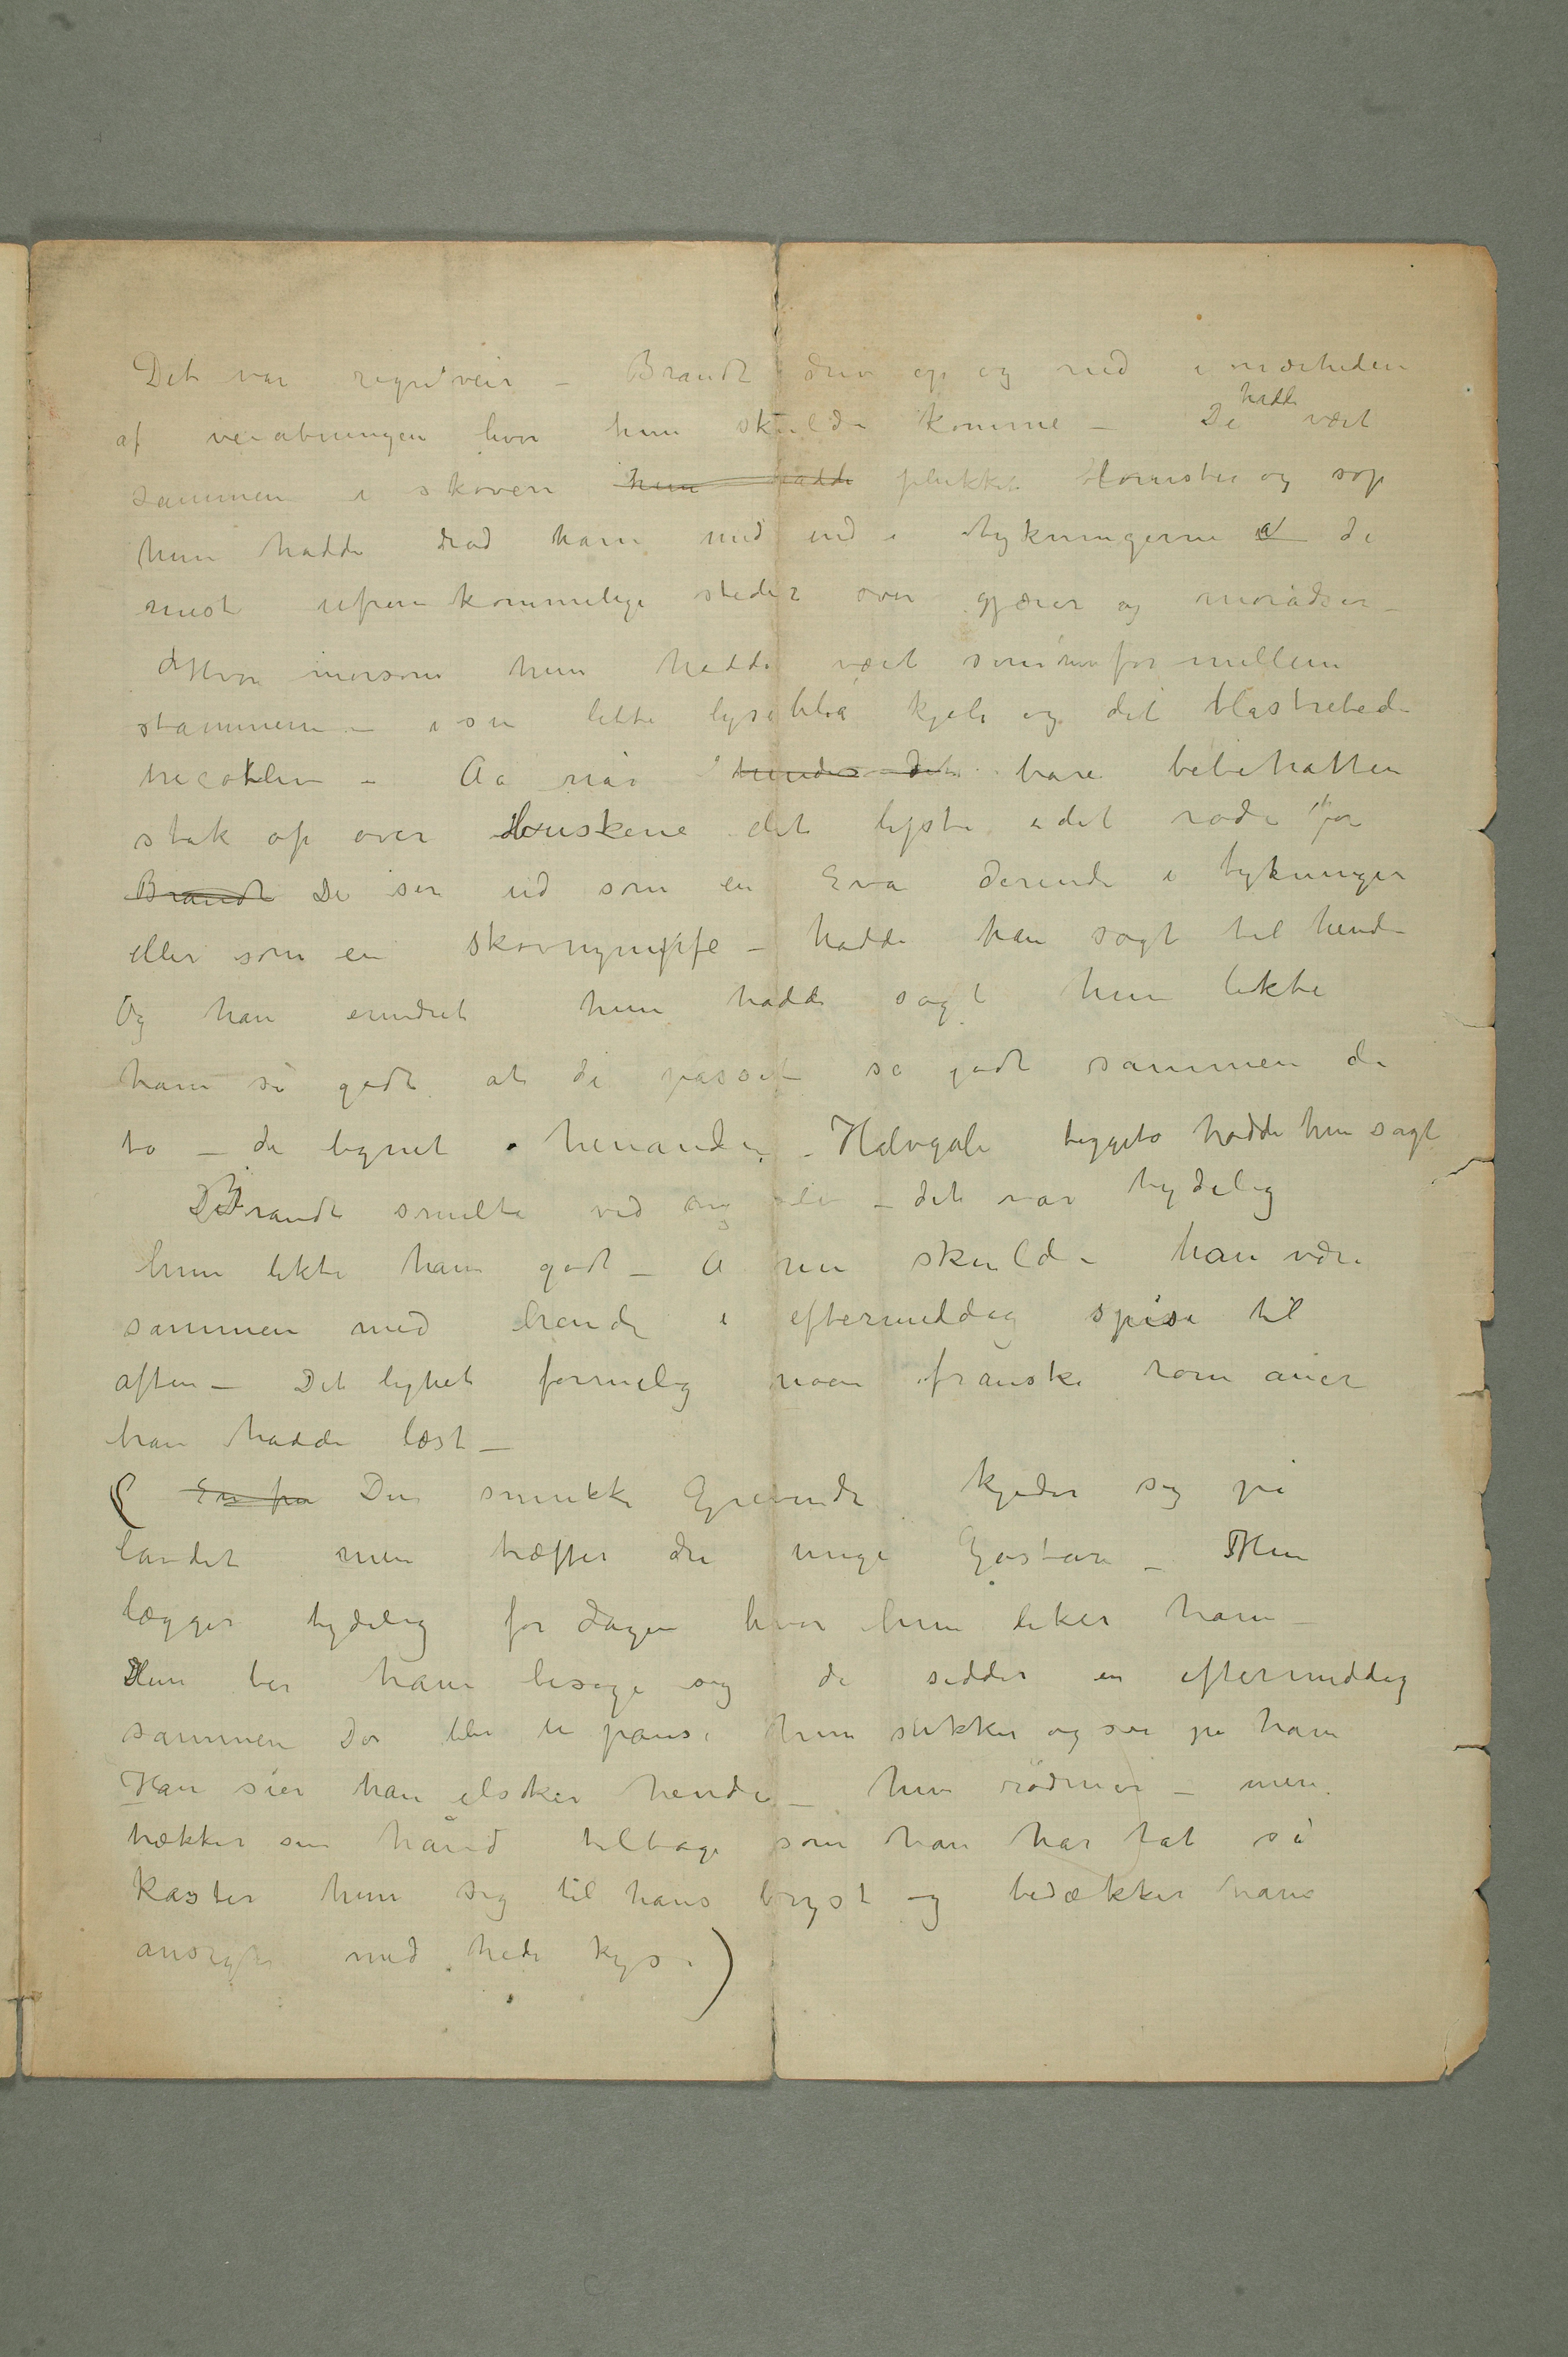 Det var regnveir – Brandt drev op og ned i nærheden
af veiabningen hvor hun skulde komme – De hadde vært
sammen i skoven hun hadde plukket blomster og sop
hun hadde drad ham med ind i tykningerne a de
mest ufremkommelige steder over gjærer og moradser –
Hvor morsom hun hadde vært somnufor mellem
stammerne – i sin lette lyseblå kjole og det blåstrebede
tricotliv – Aa når hendes det bare bebehatten
stak op over buskene det lyste i det røde hår
Brandt De ser ud som en Eva derinde i tykninger
eller som en skovnymffe – hadde han sagt til hende
Og han erindret hun hadde sagt hun likte
ham så godt at de passet så godt sammen de
to – de lignet hinanden – Halvgale beggeto hadde hun sagt
Brandt smilte ved sig selv – det var tydelig
hun likte ham godt – A nu skulde han være
sammen med hende i eftermiddag spise til
aften – Det lignet formelig noen franske romaner
han hadde læst –
( En fra Den smukke Grevinde kjeder sig på
landet men træffer den unge Gastan – Hun
lægger tydelig for dagen hvor hun liker ham –
Hun ber ham besøge sig de sidder en eftermiddag
sammen Der blir en pause hun sukker og ser på ham
Han sier han elsker hende – hun rødmer – men
trækker sin hånd tilbage som han har tat så
kaster hun sig til hans bryst og bedækker hans
ansigt med hede kys.)